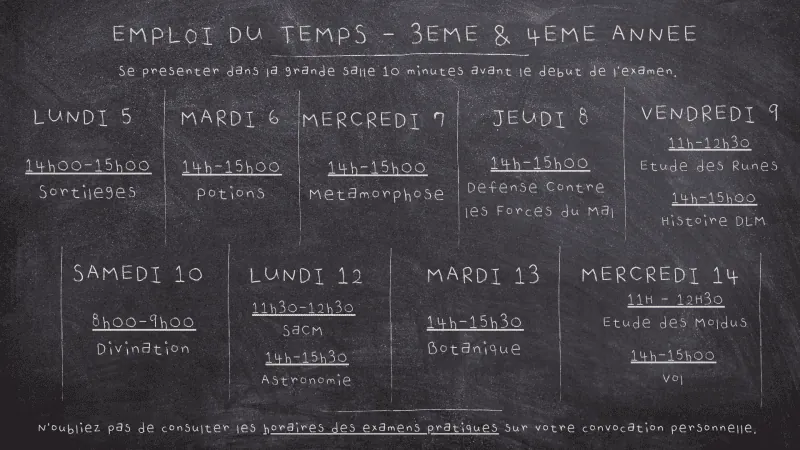 EMPLOI DU TEMPS - 3EME & 4EME ANNEE
Se presenter dans la grande salle 10 minutes avant le debut de l'examen.
LUNDI 5
14h00-15h00
Sortileges
MARDI 6
14h-15h00
Potions
MERCREDI 7
14h-15h00
Metamorphose
JEUDI 8
14h-15h00
Defense Contre
les Forces du Mal
VENDREDI 9
11h-12h30
Etude des Runes
14h-15h00
Histoire DLM
SAMEDI 10
8h00-9h00
Divination
LUNDI 12
11h30-12h30
SACM
14h-15h30
Astronomie
MARDI 13
14h-15h30
Botanique
MERCREDI 14
11H - 12H30
Etude des Moldus
14h-15h00
Vol
N'oubliez pas de consulter les horaires des examens pratiques sur votre convocation personnelle.